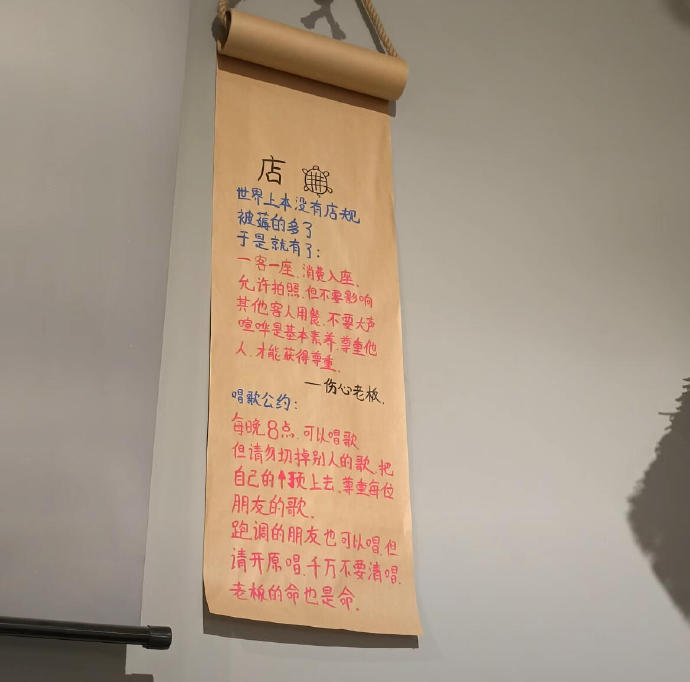 店
世界上本没有店规
被薅的多了
于是就有了：
一客一座，消费入座。
允许拍照，但不要影响
其他客人用餐，不要大声
喧哗是基本素养，尊重他
人，才能获得尊重。
—伤心老板。
唱歌公约：
每晚8点，可以唱歌
但请勿切掉别人的歌，把
自己的↑顶上去，尊重每位
朋友的歌。
跑调的朋友也可以唱，但
请开原唱，千万不要清唱，
老板的命也是命。